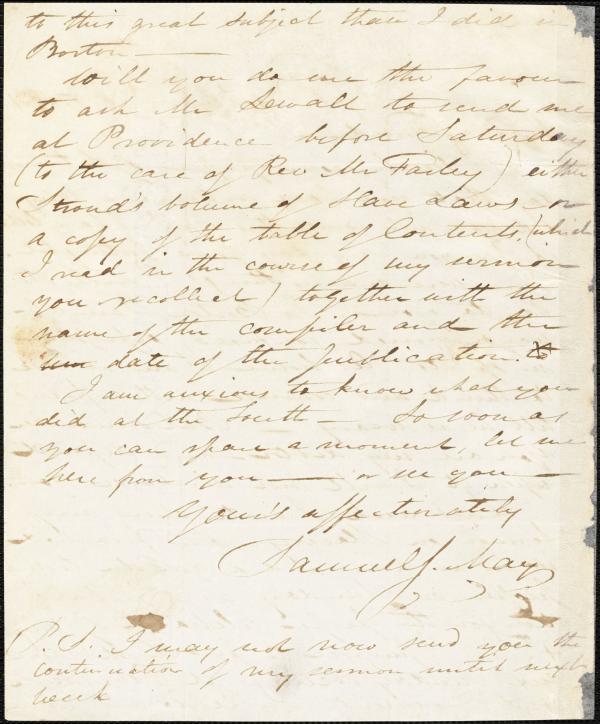 to this great subject than I did in
Boston —
Will you do me the favour
to ask Mr Sewall to send me
at Providence before Saturday
(to the care of Rev Mr Farley) either
Stroud's volume of Slave Laws or
a copy of the table of Contents, (which
I read in the course of my sermon
you recollect) together with the
name of the compiler and the
date of the publication.
I am anxious to know what you
did at the South — So soon as
you can spare a moment, let me
here from you — or see you —
Your's affectionately
Samuel J. May
P.S. I may not now send you the
continuation of my sermon until next
week